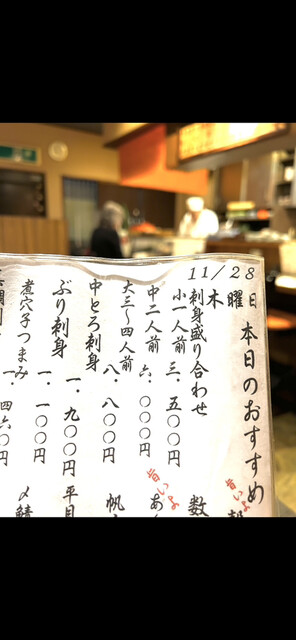 11/28
木曜日
本日のおすすめ
刺身盛り合わせ
小一人前 三.五〇〇円
中二人前 六.〇〇〇円
大三〜四人前 八.八〇〇円
中とろ刺身 一.九〇〇円
ぶり刺身 一.一〇〇円
煮穴子つまみ 一.四六〇円
数
あ
帆
平目
〆鯖